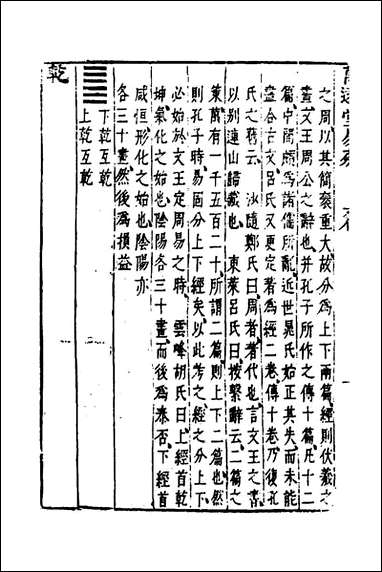 之周以其簡袠重大故分爲上下兩篇經則伏羲之
畫文王周公之辭也并孔子所作之傳十篇凡十二
篇中間頗爲諸儒所亂近世晁氏始正其失而未能
盡合古文呂氏又更定著爲經二卷傳十卷乃復孔
氏之舊云 沙隨鄭氏曰周者著代也言文王之書
以别連山歸藏也 東萊呂氏曰按繫辭云二篇之
策萬有一千五百二十所謂二篇則上下二篇也然
則孔子時易固分上下經矣以此考之經之分上下
必始於文王定周易之時 雲峰胡氏曰上經首乾
坤氣化之始也陰陽各三十畫而後爲泰否下經首
咸恒形化之始也陰陽亦
各三十畫然後爲損益
下乾互乾
上乾互乾
乾